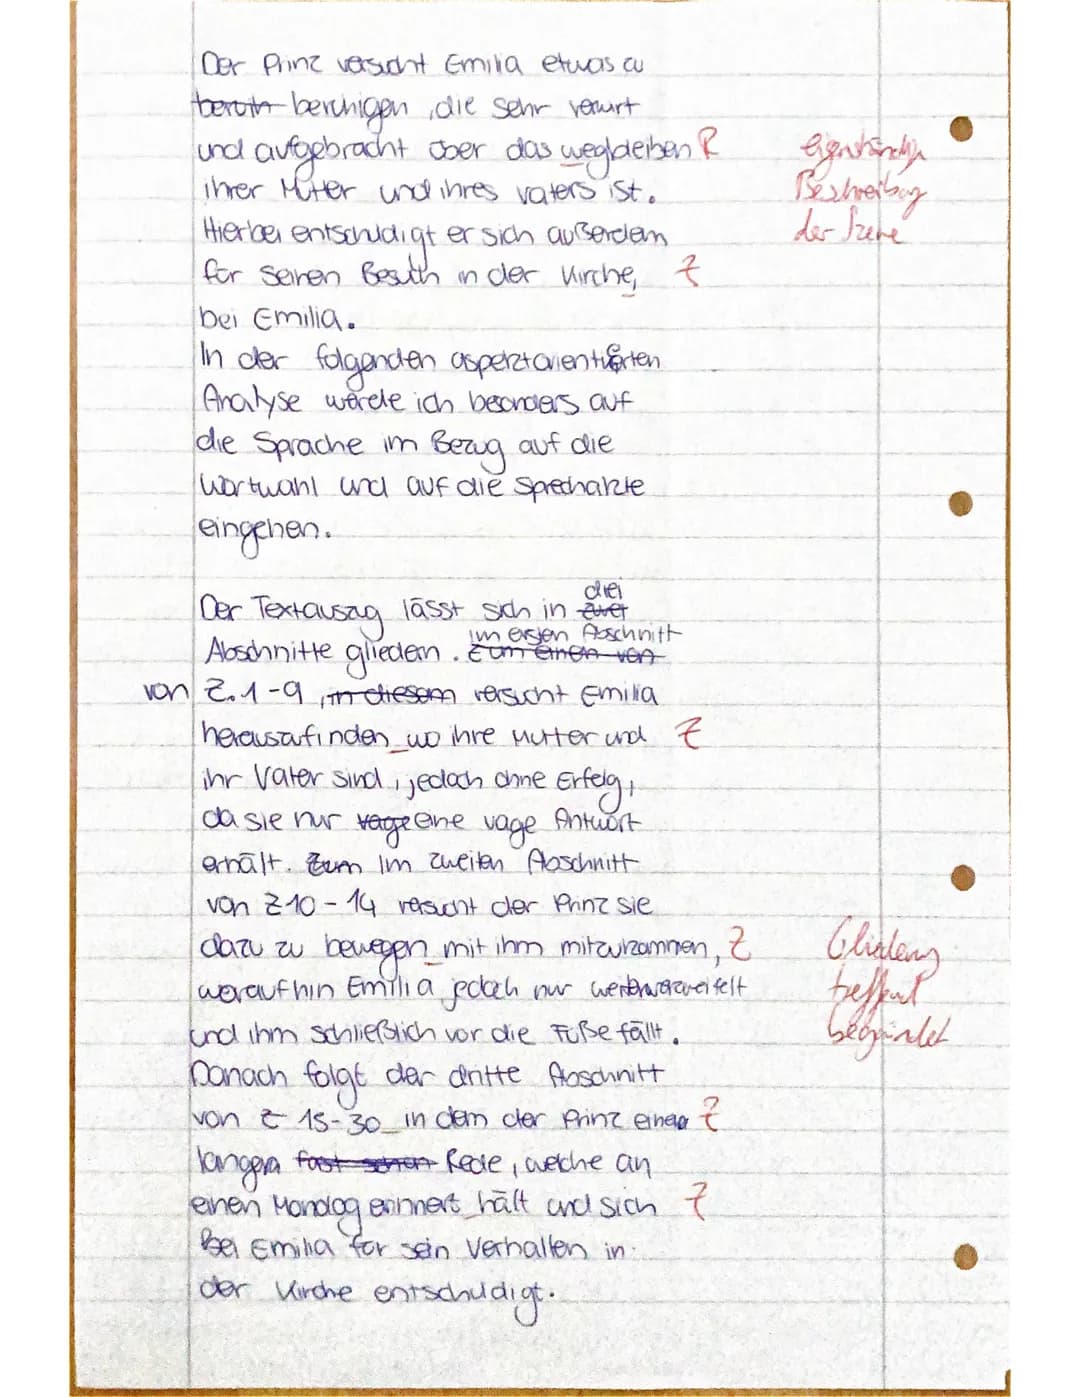 Der Prinz versucht Emilia etwas zu
beruhigen, die sehr verwirt
und aufgebracht über das wegbleiben R
ihrer Mutter und ihres vaters ist.
Hierbei entschudigt er sich außerdem
für seinen Besuch in der Kirche, Z
bei Emilia.
eigenständige
Beschreibung
der Szene
In der folgenden aspektorientierten
Analyse werde ich besonders auf
die Sprache im Bezug auf die
Wortwahl und auf die Sprechakte
eingehen.
Der Textauszug lässt sich in zwei drei
Abschnitte gliedern. Zum einen von im ersten Abschnitt
von Z.1-9, in diesem versucht Emilia
herauszufinden wo ihre Mutter und Z
ihr Vater sind, jedoch ohne Erfolg,
da sie nur vage eine vage Antwort
erhält. Zum Im zweiten Abschnitt
von Z10-14 versucht der Prinz sie
dazu zu bewegen mit ihm mitzukommen, Z
woraufhin Emilia jedoch nur verzweifelt
und ihm schließlich vor die Füße fällt.
Gliederung
treffend
begründet
Danach folgt der dritte Abschnitt
von Z 15-30 in dem der Prinz einen Z
langen fast schon Rede, welche an
einen Monolog erinnert hält und sich Z
Bei Emilia für sein Verhalten in
der Kirche entschuldigt.